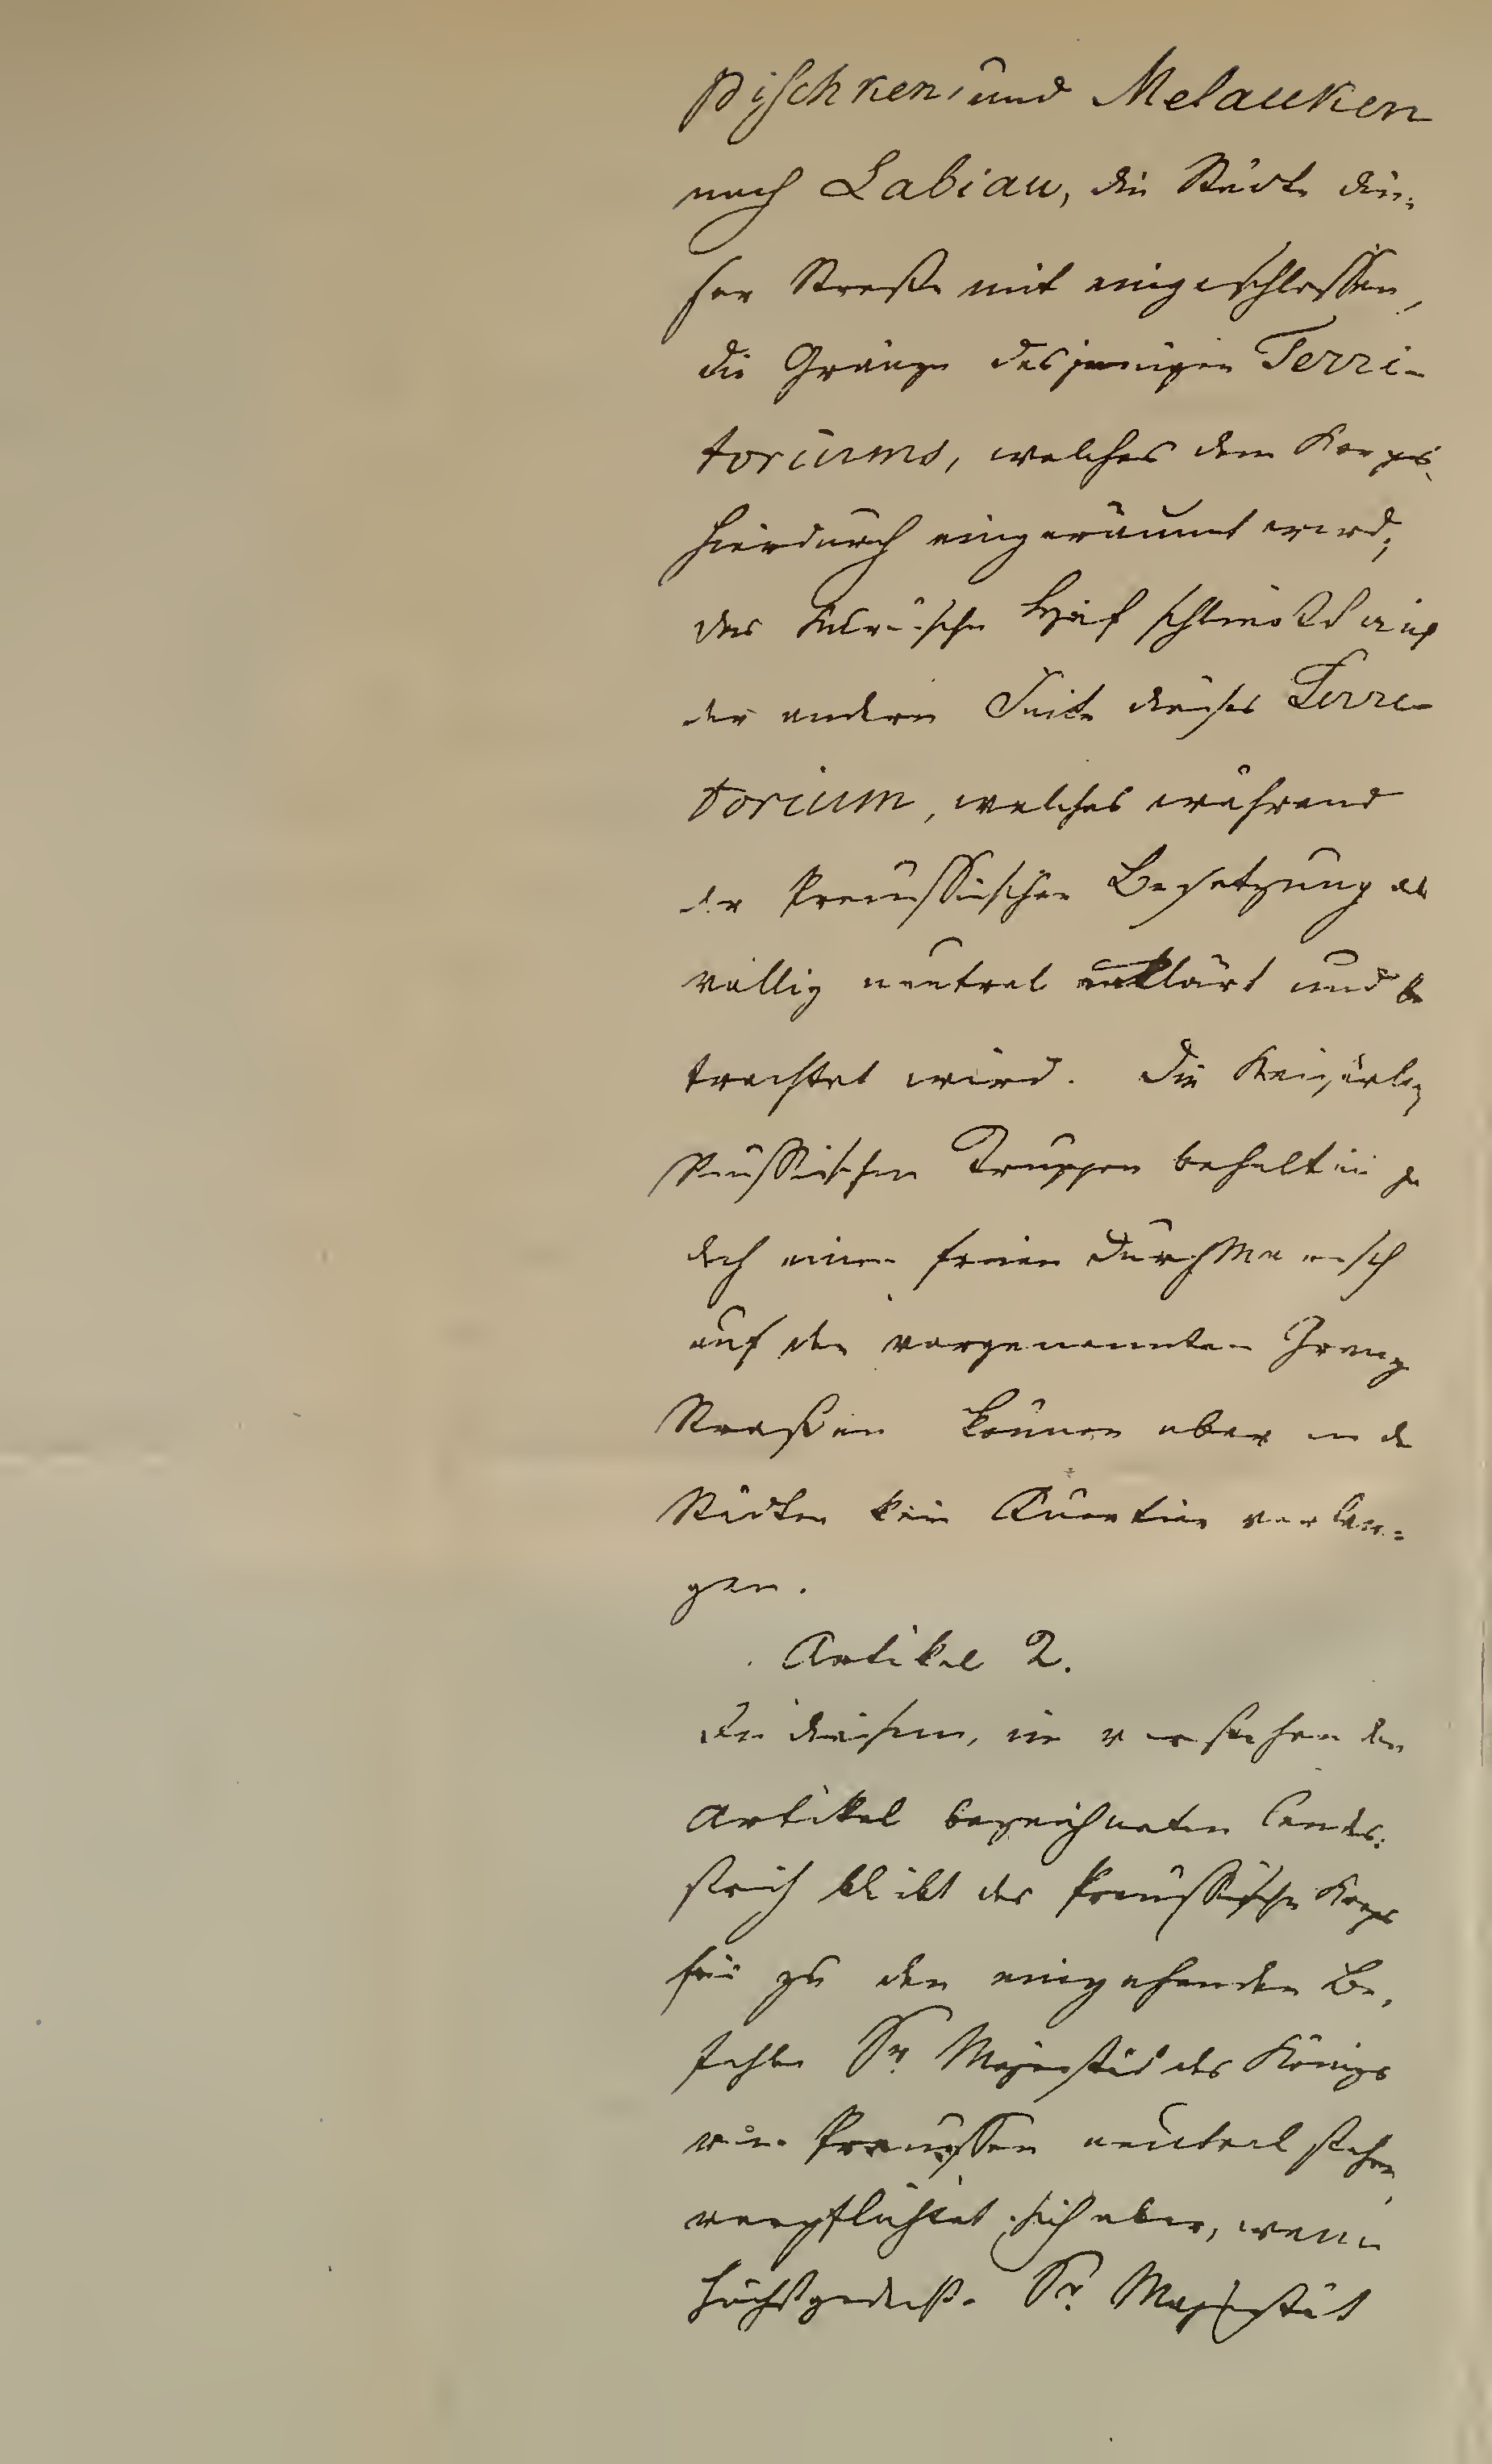 pischken, und Melauken
nach Labiau, die Städte die-
ser Straße mit eingeschlossen,
die Gränze desjenigen Terri-
toriums, welches dem Korps
hierdurch eingeräumt wird;
das Kurische Haf schließt auf
der andern Seite dieses Terri-
torium, welches während
der Preussischen Besetzung als
völlig neutral erklärt und be
trachtet wird. Die Kaiserlich
Russischen Truppen behalten je
doch einen freien Durchmarsch
auf den vorgenannten Grenz
Straßen können aber in den
Städten kein Quartier verlan-
gen.
Artikel 2.
In diesem, im vorstehenden
Artikel bezeichneten Landes-
strich bleibt das Preussische Korps
bis zu den eingehenden Be-
fehlen Sr. Majestät des Königs
von Preussen neutral stehen,
verpflichtet sich aber, wenn
Höchstgedachte Sr. Majestät